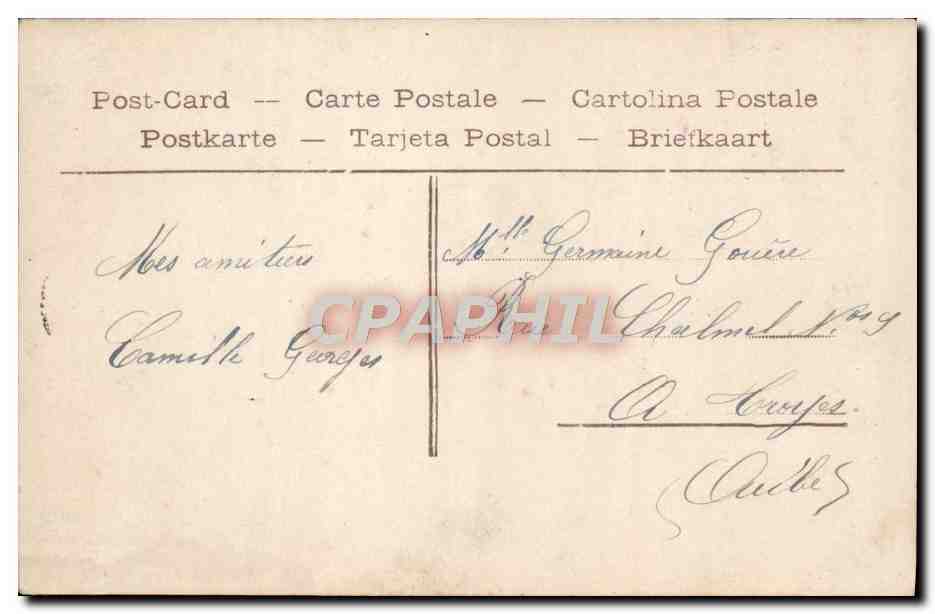 Post-Card -- Carte Postale — Cartolina Postale
Postkarte — Tarjeta Postal — Briefkaart
Mes amitiés
Camille Georges
Mlle Germaine
Rue N°
A Troyes.
(Aube)
CPAPHIL